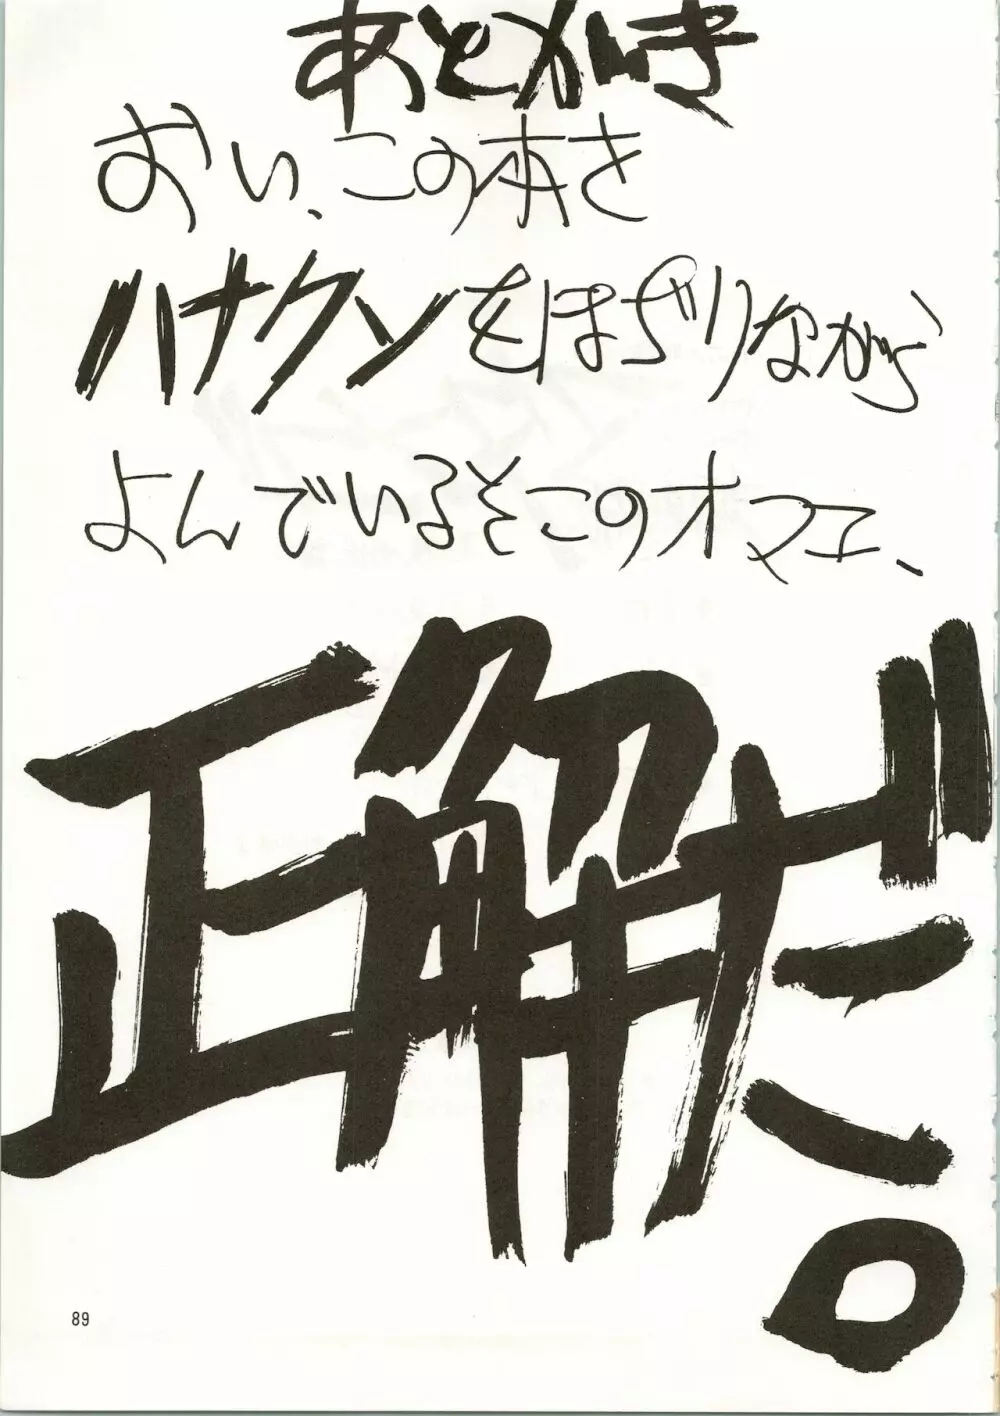 あとがき
おい、この本を
ハナクソをほぢりながら
よんでいるそこのオマエ、
正解だ。
89